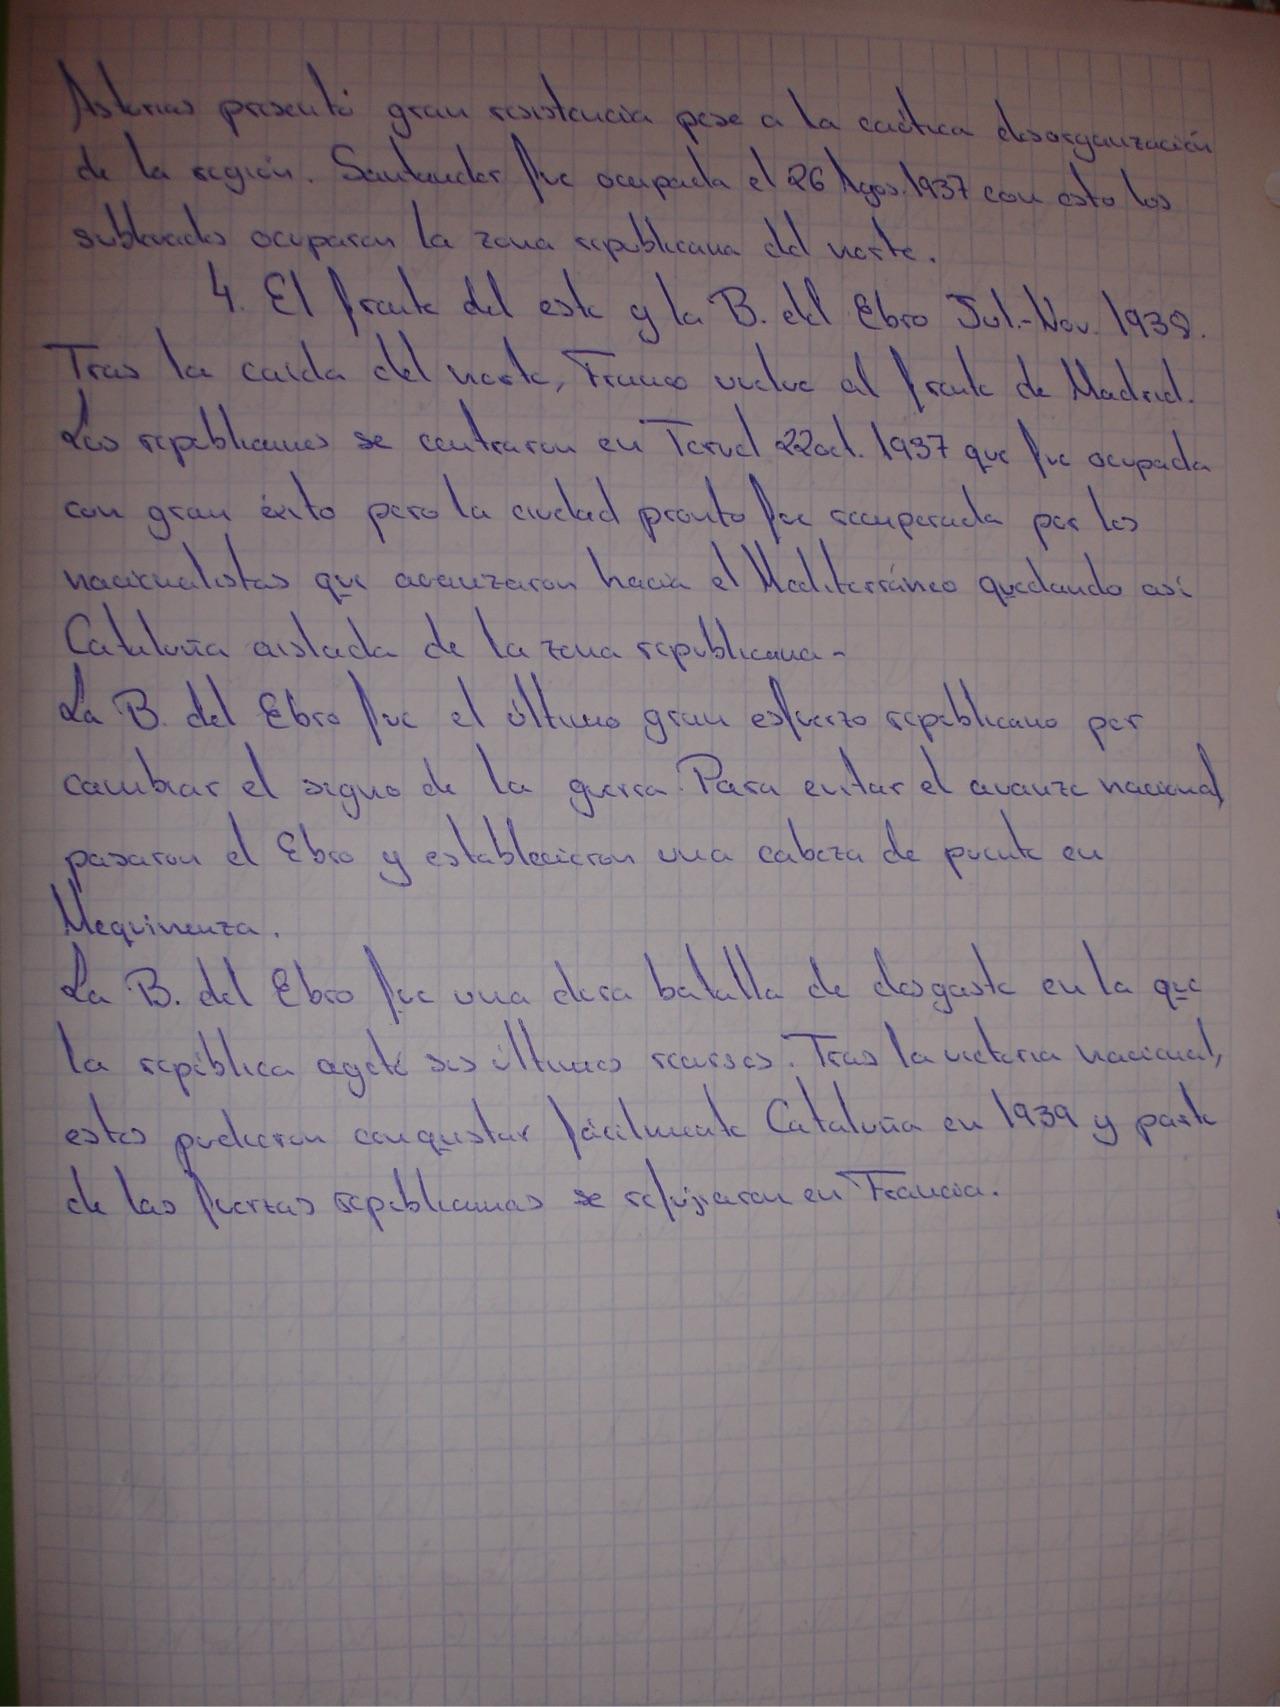 Asturias presentó gran resistencia pese a la caótica desorganización
de la región. Santander fue ocupada el 26 Agos. 1937 con esto los
sublevados ocuparon la zona republicana del norte.
4. El frente del este y la B. del Ebro Jul.-Nov. 1938.
Tras la caída del norte, Franco vuelve al frente de Madrid.
Los republicanos se centraron en Teruel 22oct. 1937 que fue ocupada
con gran éxito pero la ciudad pronto fue recuperada por los
nacionalistas que avanzaron hacia el Mediterráneo quedando así
Cataluña aislada de la zona republicana.
La B. del Ebro fue el último gran esfuerzo republicano por
cambiar el signo de la guerra. Para evitar el avance nacional
pasaron el Ebro y establecieron una cabeza de puente en
Mequinenza.
La B. del Ebro fue una dura batalla de desgaste en la que
la república agotó sus últimos recursos. Tras la victoria nacional,
estos pudieron conquistar fácilmente Cataluña en 1939 y parte
de las fuerzas republicanas se refujiaron en Francia.